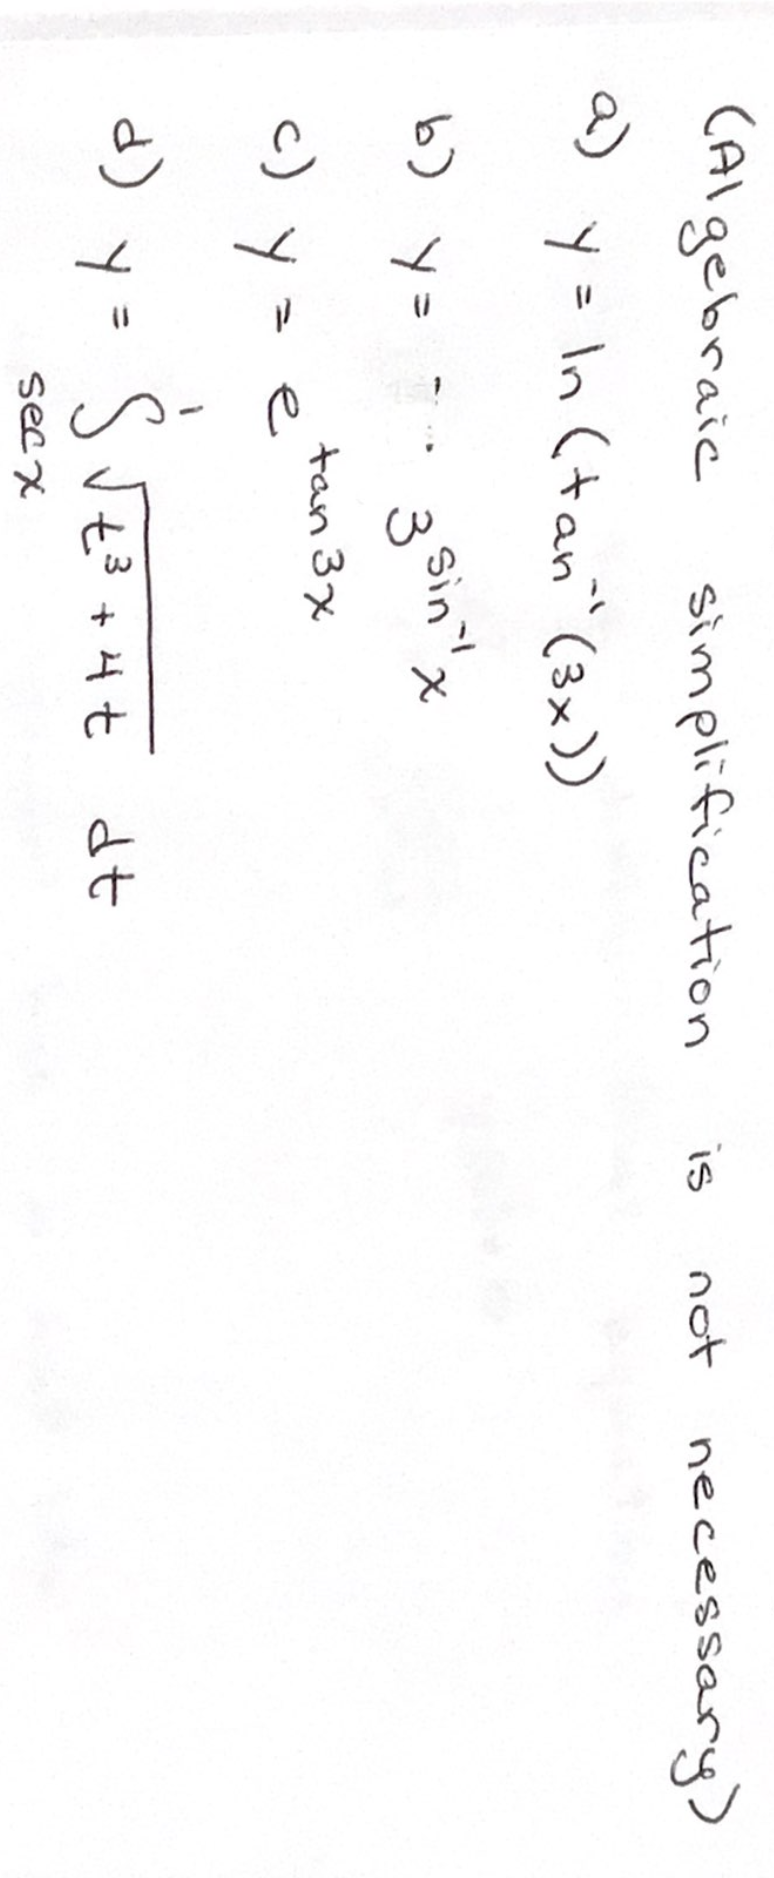 (Algebraic simplification is not necessary)
a) y = ln (tan⁻¹ (3x))
b) y = 3^sin⁻¹ x
c) y = e^tan 3x
d) y = ∫_sec x^1 √(t³ + 4t) dt